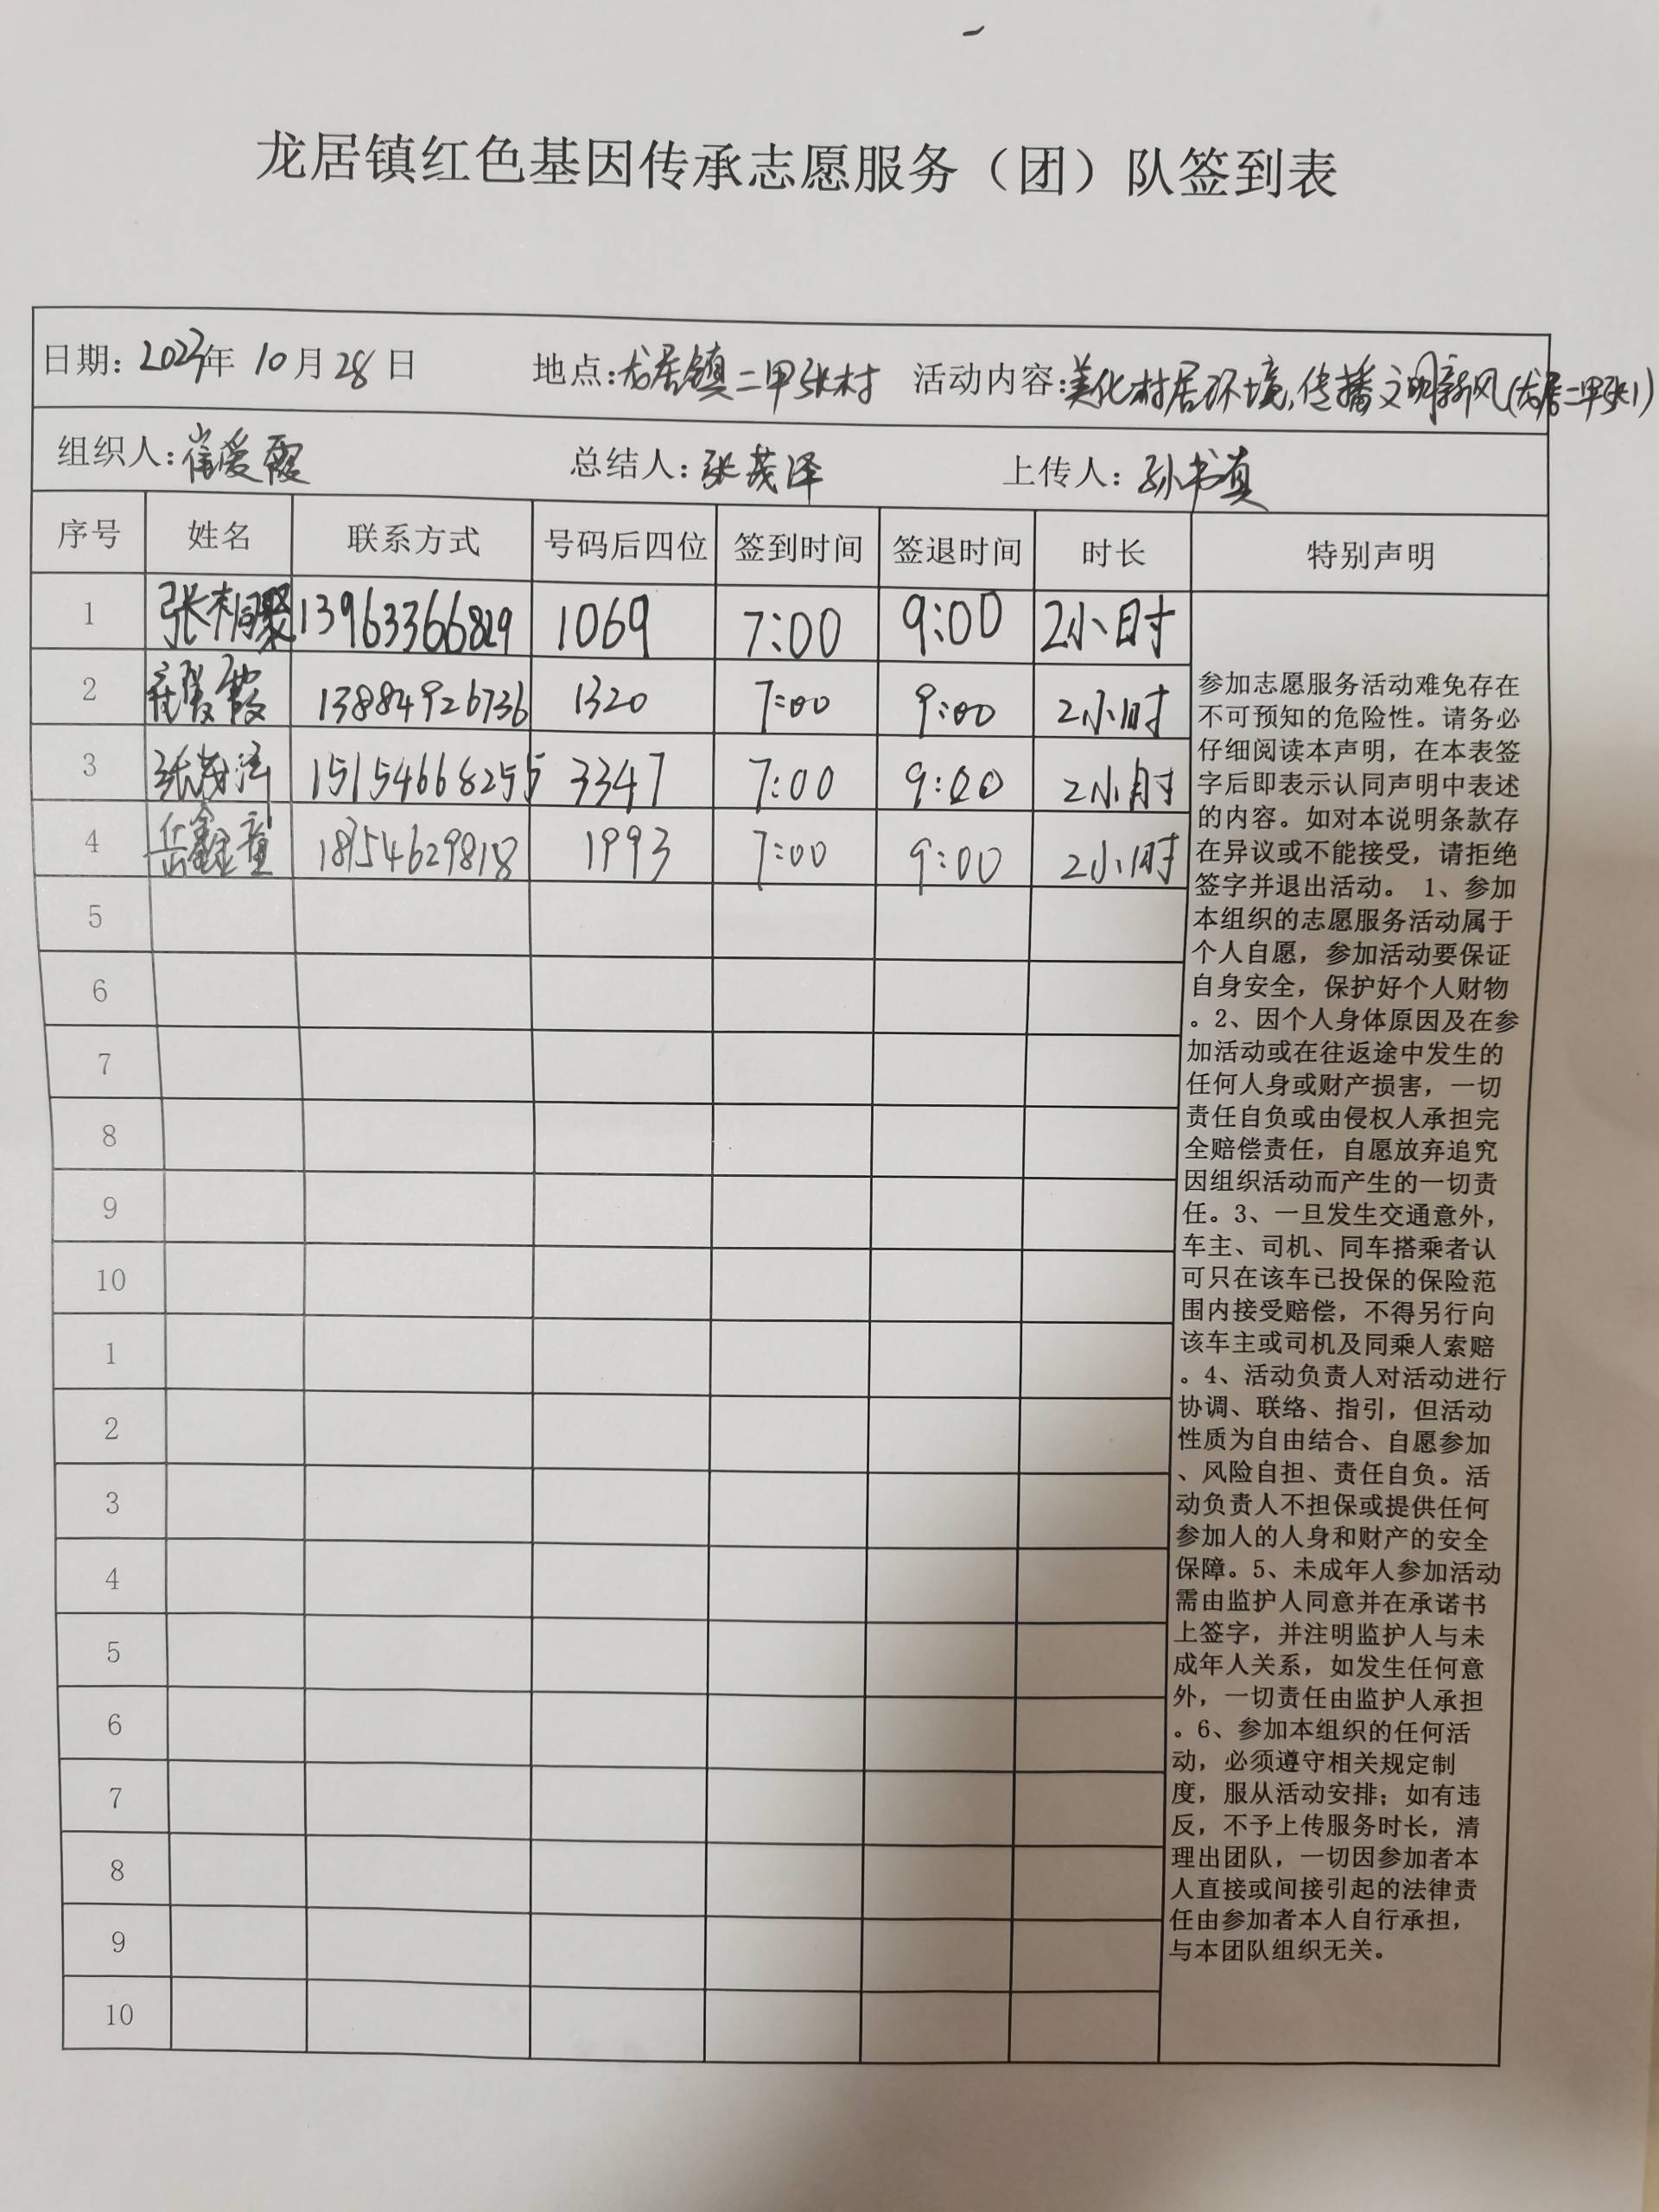 龙居镇红色基因传承志愿服务（团）队签到表
日期：2023年 10月28日 地点：龙居镇二甲张村 活动内容：美化村居环境,传播文明新风(龙居二甲张1)
组织人：崔爱霞 总结人：张茂泽 上传人：孙书真
序号 姓名 联系方式 号码后四位 签到时间 签退时间 时长 特别声明
1 张相聚 13963366829 1069 7:00 9:00 2小时
2 崔爱霞 13884926736 1320 7:00 9:00 2小时
3 张茂泽 15154668255 3347 7:00 9:00 2小时
4 岳鑫童 18754629818 1993 7:00 9:00 2小时
5
6
7
8
9
10
1
2
3
4
5
6
7
8
9
10
参加志愿服务活动难免存在
不可预知的危险性。请务必
仔细阅读本声明，在本表签
字后即表示认同声明中表述
的内容。如对本说明条款存
在异议或不能接受，请拒绝
签字并退出活动。 1、参加
本组织的志愿服务活动属于
个人自愿，参加活动要保证
自身安全，保护好个人财物
。2、因个人身体原因及在参
加活动或在往返途中发生的
任何人身或财产损害，一切
责任自负或由侵权人承担完
全赔偿责任，自愿放弃追究
因组织活动而产生的一切责
任。3、一旦发生交通意外，
车主、司机、同车搭乘者认
可只在该车已投保的保险范
围内接受赔偿，不得另行向
该车主或司机及同乘人索赔
。4、活动负责人对活动进行
协调、联络、指引，但活动
性质为自由结合、自愿参加
、风险自担、责任自负。活
动负责人不担保或提供任何
参加人的人身和财产的安全
保障。5、未成年人参加活动
需由监护人同意并在承诺书
上签字，并注明监护人与未
成年人关系，如发生任何意
外，一切责任由监护人承担
。6、参加本组织的任何活
动，必须遵守相关规定制
度，服从活动安排；如有违
反，不予上传服务时长，清
理出团队，一切因参加者本
人直接或间接引起的法律责
任由参加者本人自行承担，
与本团队组织无关。